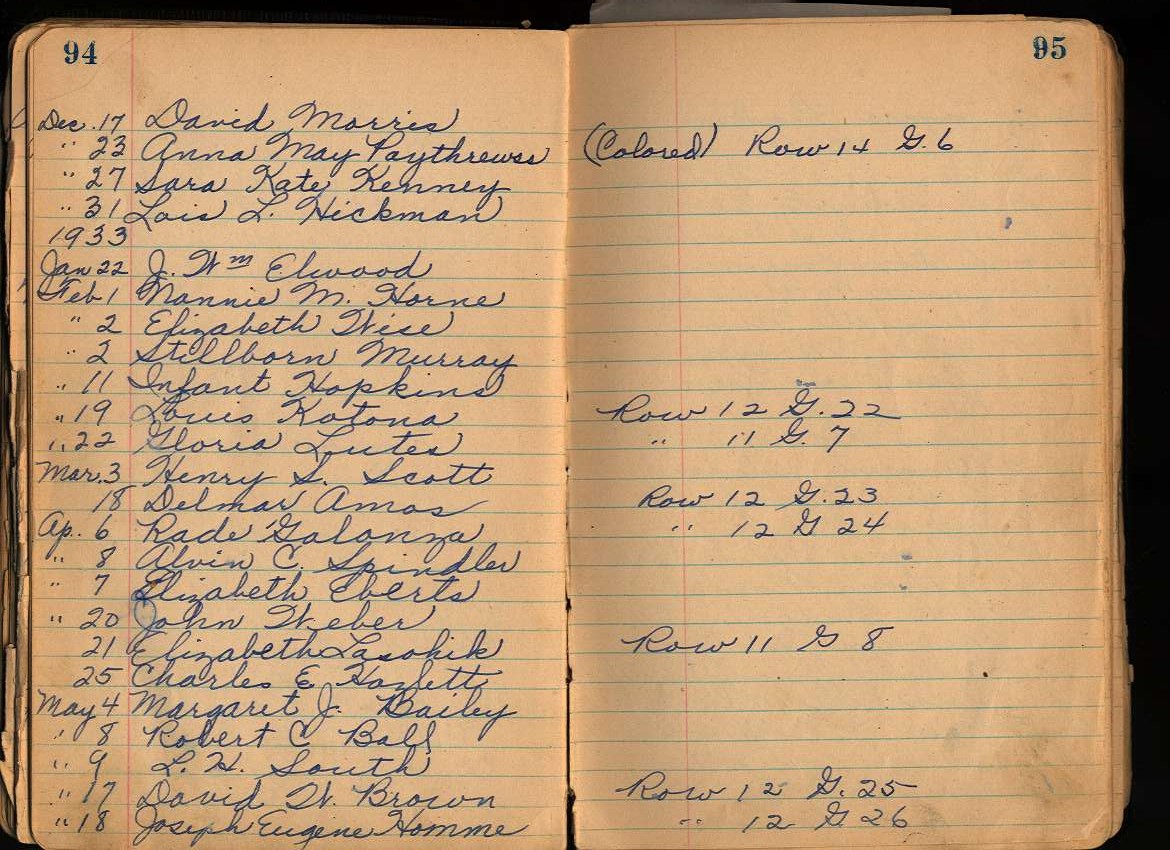 94
Dec. 17 David Morris
" 23 Anna May Paythrewss
" 27 Sara Kate Kenney
" 31 Lois L. Hickman
1933
Jan 22 J. Wm Elwood
Feb 1 Nannie M. Horne
" 2 Elizabeth Wise
" 2 Stillborn Murray
" 11 Infant Hopkins
" 19 Louis Katona
" 22 Gloria Lutes
Mar. 3 Henry S. Scott
18 Delmar Amos
Ap. 6 Rade Galonza
" 8 Alvin C. Spindler
" 7 Elizabeth Eberts
" 20 John Weber
21 Elizabeth Lasohik
25 Charles E Hazlett
May 4 Margaret J. Bailey
" 8 Robert C Ball
" 9 L. H. South
" 17 David W. Brown
" 18 Joseph Eugene Homme
95
(Colored) Row 14 G. 6
Row 12 G. 22
" 11 G. 7
Row 12 G. 23
" 12 G 24
Row 11 G 8
Row 12 G. 25
" 12 G 26